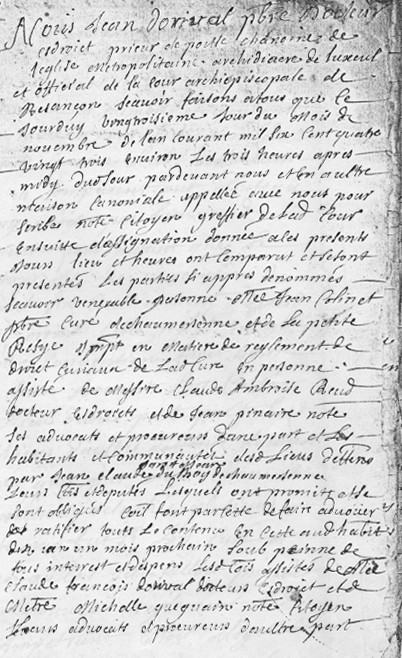 Nous Jean dorival pbre docteur
esdroict prieur de porte chanoine de
leglise metropolitaine archidiacre de luxeul
et official de la Cour archiepiscopale de
Besançon scavoir faisons atous que Ce
Jourdhuy vingtroisieme Jour du Mois de
novembre de lan courant mil six Cent quatre
vingt trois Environ Les trois heures apres
midy dud Jour pardevant nous et En nostre
maison Canoniale appellée avec nous pour
scribe note Citoyen greffier de lad Cour
Ensuitte dassignation donnée a les presents
Jours lieu et heures ont Comparut et se sont
presentés Les parties Cy appres denommés
scavoir venerable personne Mre Jean Colinet
pbre Curé dechaumersenne et de la petite
Resye Impt en Matiere de reglement de
droict Curiaux de Lad Cure En personne
assisté de Messire Claude Ambroise
docteur Esdroicts et de Jean note
Ses advocats et procureurs dune part et Les
habitants et Communautez desd Lieus
par Jean Claude du dechaumersenne
Leurs Cois et deputes Lesquels ont promit et se
sont obligés Coil font par cette de faire advouer
de ratifier touts Le Contenu En Cette aud habit
dez un mois prochain Soub peinne de
tous interest et despens Lesd Cois assistes de Mre
Claude francois dorival docteur Esdroict et de
Mestre Michelle note Citoyen
Leurs advocats et procureurs daultre part